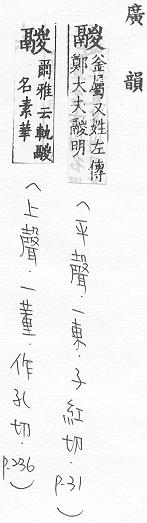 廣韻
鬷
釜屬又姓左傳
鄭大夫鬷明
(平聲.一東.子紅切.P.31)
鬷
爾雅云軌鬷
名素華
(上聲.一董.作孔切.P.236)